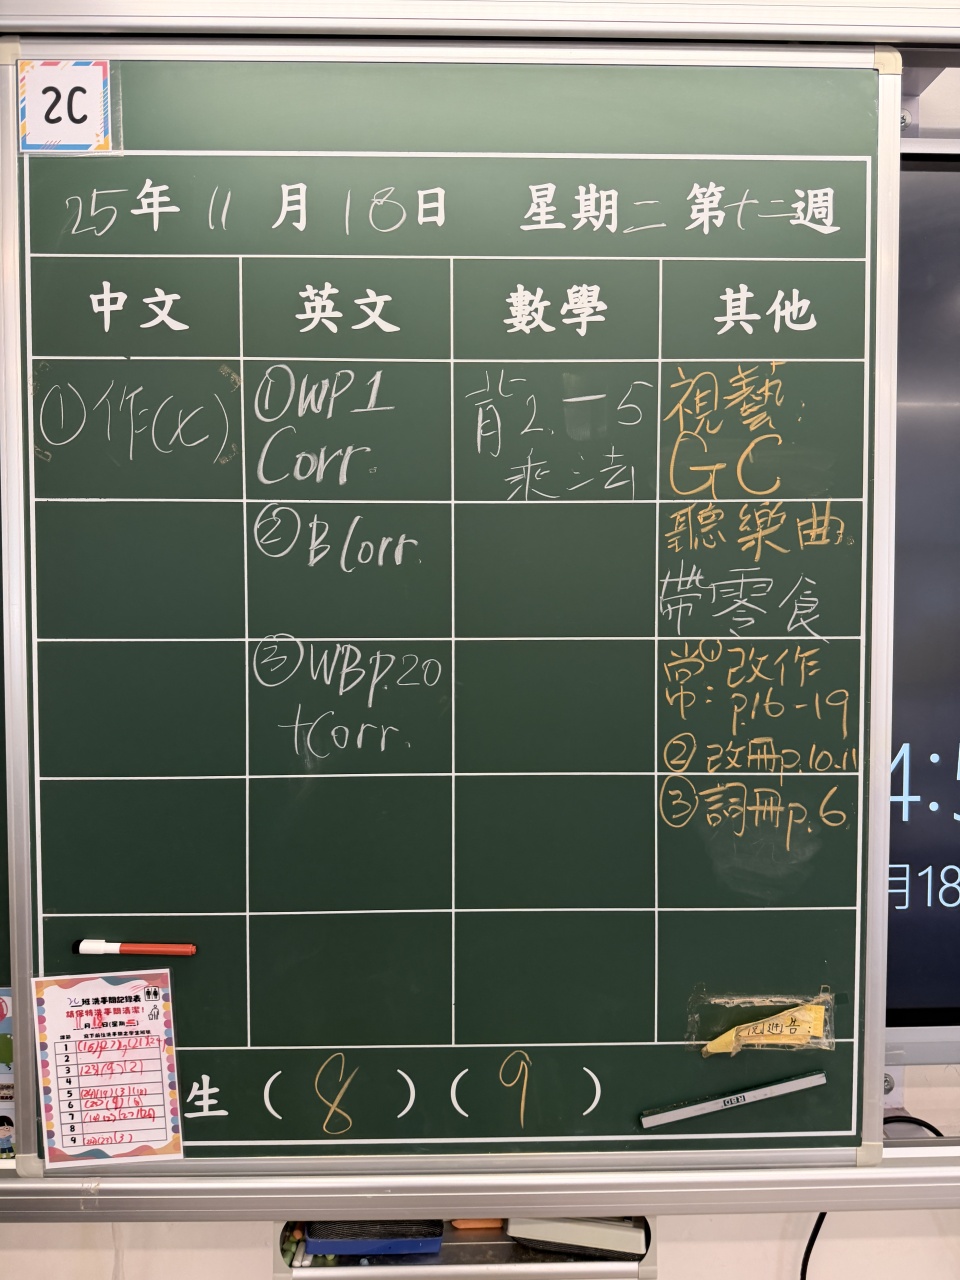 2C
25年11月18日 星期二 第十二週
中文 英文 數學 其他
①作(x)
①WP1
Corr.
②B Corr.
③WB p.20
+Corr.
背2-5
乘法
視藝:
GC
聽樂曲
帶零食
常:①改作
p.16-19
②改冊p.10-11
③詞冊p.6
告:
生(8)(9)
2C班洗手間記錄表
請保持洗手間清潔!
11月18日(星期二)
1
2
3 (23)(9)(2)
4
5
6
7
8
9
4:5
月18